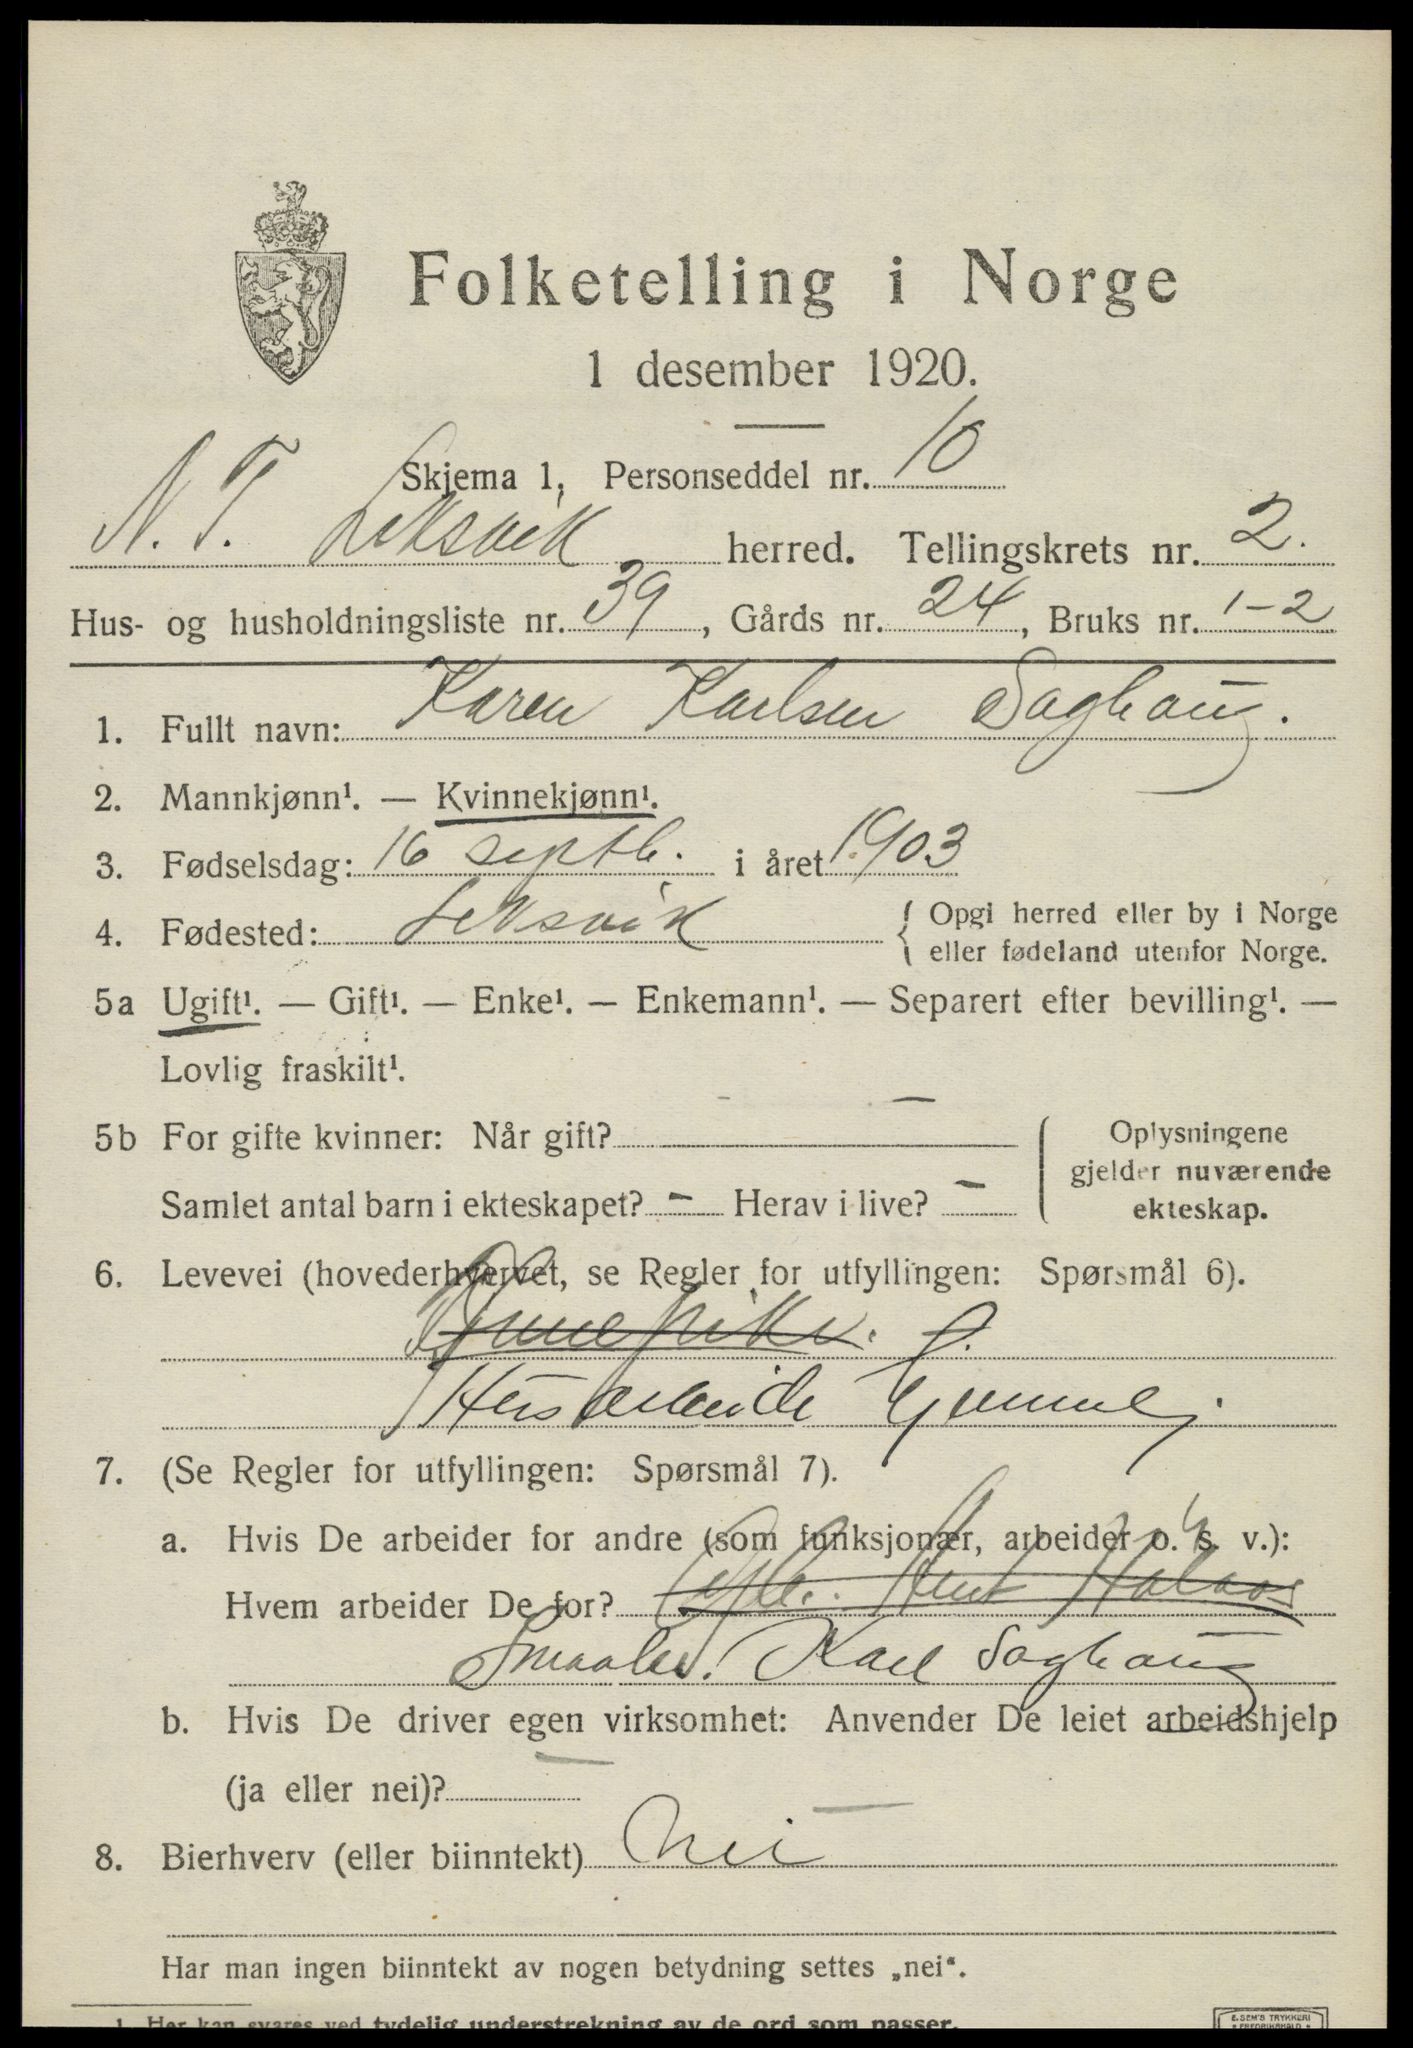 Folketelling i Norge
1 desember 1920.
Skjema 1, Personseddel nr. 10
N. T. Leksvik herred. Tellingskrets nr. 2.
Hus- og husholdningsliste nr. 39, Gårds nr. 24, Bruks nr. 1-2
1. Fullt navn: Karen Karlsen Saghaug.
2. Mannkjønn¹. — Kvinnekjønn¹.
3. Fødselsdag: 16 septb. i året 1903
4. Fødested: Leksvik { Opgi herred eller by i Norge
eller fødeland utenfor Norge.
5a Ugift¹. — Gift¹. — Enke¹. — Enkemann¹. — Separert efter bevilling¹. —
Lovlig fraskilt¹.
5b For gifte kvinner: Når gift? —
Samlet antal barn i ekteskapet? – Herav i live? –
Oplysningene
gjelder nuværende
ekteskap.
6. Levevei (hovederhvervet, se Regler for utfyllingen: Spørsmål 6).
Husarbeide hjemme
7. (Se Regler for utfyllingen: Spørsmål 7).
a. Hvis De arbeider for andre (som funksjonær, arbeider o. s. v.):
Hvem arbeider De for?
Smaabr. Karl Saghaug
b. Hvis De driver egen virksomhet: Anvender De leiet arbeidshjelp
(ja eller nei)? —
8. Bierhverv (eller biinntekt) Nei
Har man ingen biinntekt av nogen betydning settes „nei“.
1. Her kan svares ved tydelig understrekning av de ord som passer.
E. SEM'S TRYKKERI
FREDRIKSHALD